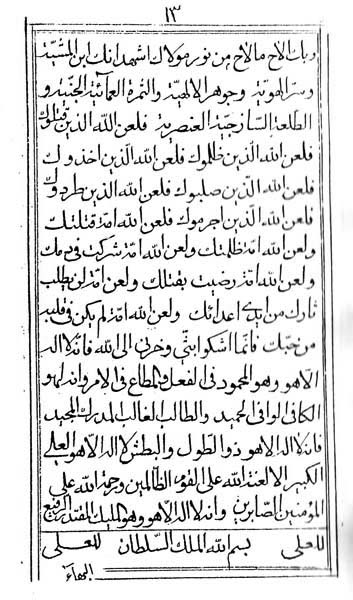 ١٣
وبك الاح مالاح من نور مولاك اشهد انك ابن المشية
وسر الهوية وجوهر الالهية والثمرة العمائية الجنية و
الطلعة الساذجية العنصرية فلعن الله الذين قتلوك
فلعن الله الذين ظلموك فلعن الله الذين اخذوك
فلعن الله الذين صلبوك فلعن الله الذين طردوك
فلعن الله الذين اجرموك فلعن الله امة قتلتك
ولعن الله امة ظلمتك ولعن الله امة شركت في دمك
ولعن الله امة رضيت بقتلك ولعن الله امة لن يطلب
ثارك من ايدي اعدائك ولعن الله امة لم يكن في قلبه
من حبك فانما اشكوا بثي وحزني الى الله فانه لا اله
الا هو وهو المحمود في الفعل والمطاع في الامر وانه لهو
الكافي الوافي الحميد والطالب الغالب المدرك المجيد
فانه لا اله الا هو ذو الطول والبطش لا اله الا هو العلي
الكبير الا لعنة الله على القوم الظالمين ورحمة الله على
المؤمنين الصابرين وانه لا اله الا هو وهو المليك المقتدر الرفيع
للعلى بسم الله الملك السلطان للعلى
البهاء